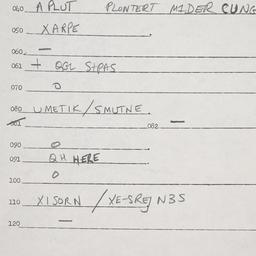 040 A PLUT PLONTERT MIDER CUNG
050 XARPE
060 —
061 + QGL STPAS
070 O
080 UMETIK / SMUTNE.
081 082 —
090 O
091 QH HERE
100 O
110 XISORN / XE-SREJ N3S
120 —